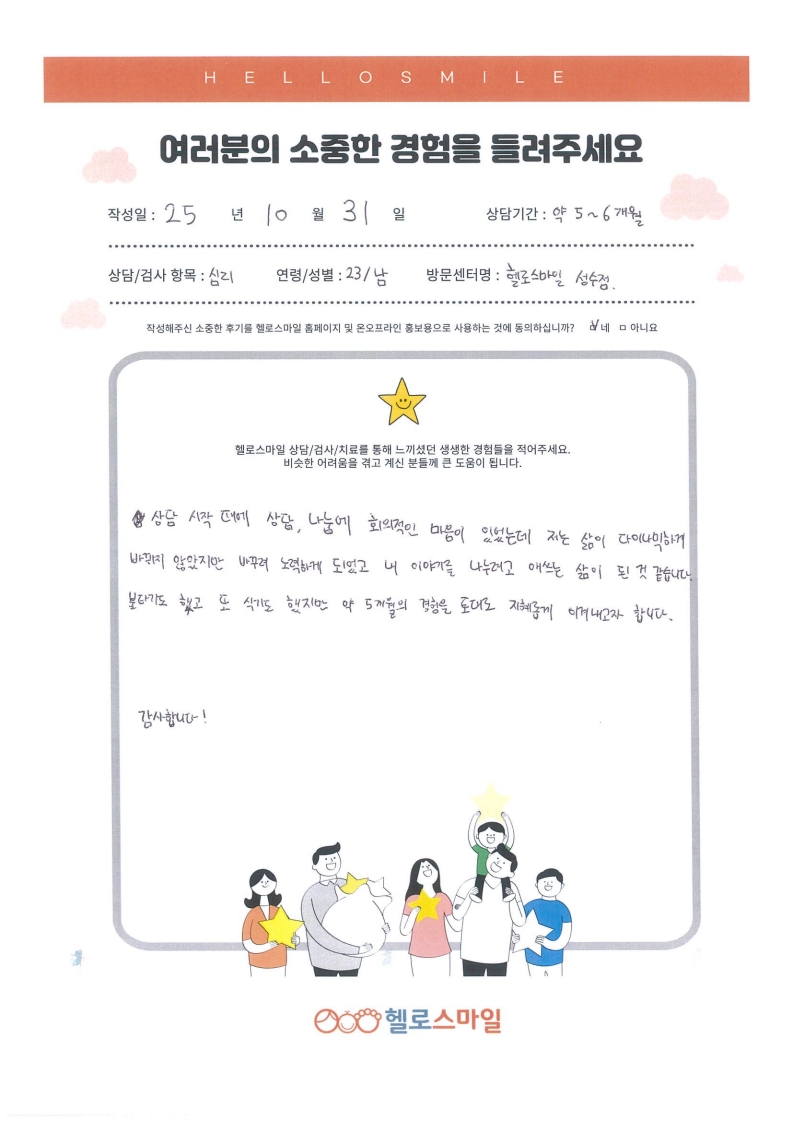 HELLOSMILE
여러분의 소중한 경험을 들려주세요
작성일 : 25 년 10 월 31 일 상담기간 : 약 5~6개월
상담/검사 항목 : 심리 연령/성별 : 23/남 방문센터명 : 헬로스마일 성수점.
작성해주신 소중한 후기를 헬로스마일 홈페이지 및 온오프라인 홍보용으로 사용하는 것에 동의하십니까? ☑ 네 □ 아니요
헬로스마일 상담/검사/치료를 통해 느끼셨던 생생한 경험들을 적어주세요.
비슷한 어려움을 겪고 계신 분들께 큰 도움이 됩니다.
상담 시작 때에 상담, 나눔에 회의적인 마음이 있었는데 저는 삶이 다이나믹하게
바뀌지 않았지만 바꾸려 노력하게 되었고 내 이야기를 나누려고 애쓰는 삶이 된 것 같습니다.
불타기도 했고 또 식기도 했지만 약 5개월의 경험을 토대로 지혜롭게 이겨내고자 합니다.
감사합니다!
헬로스마일